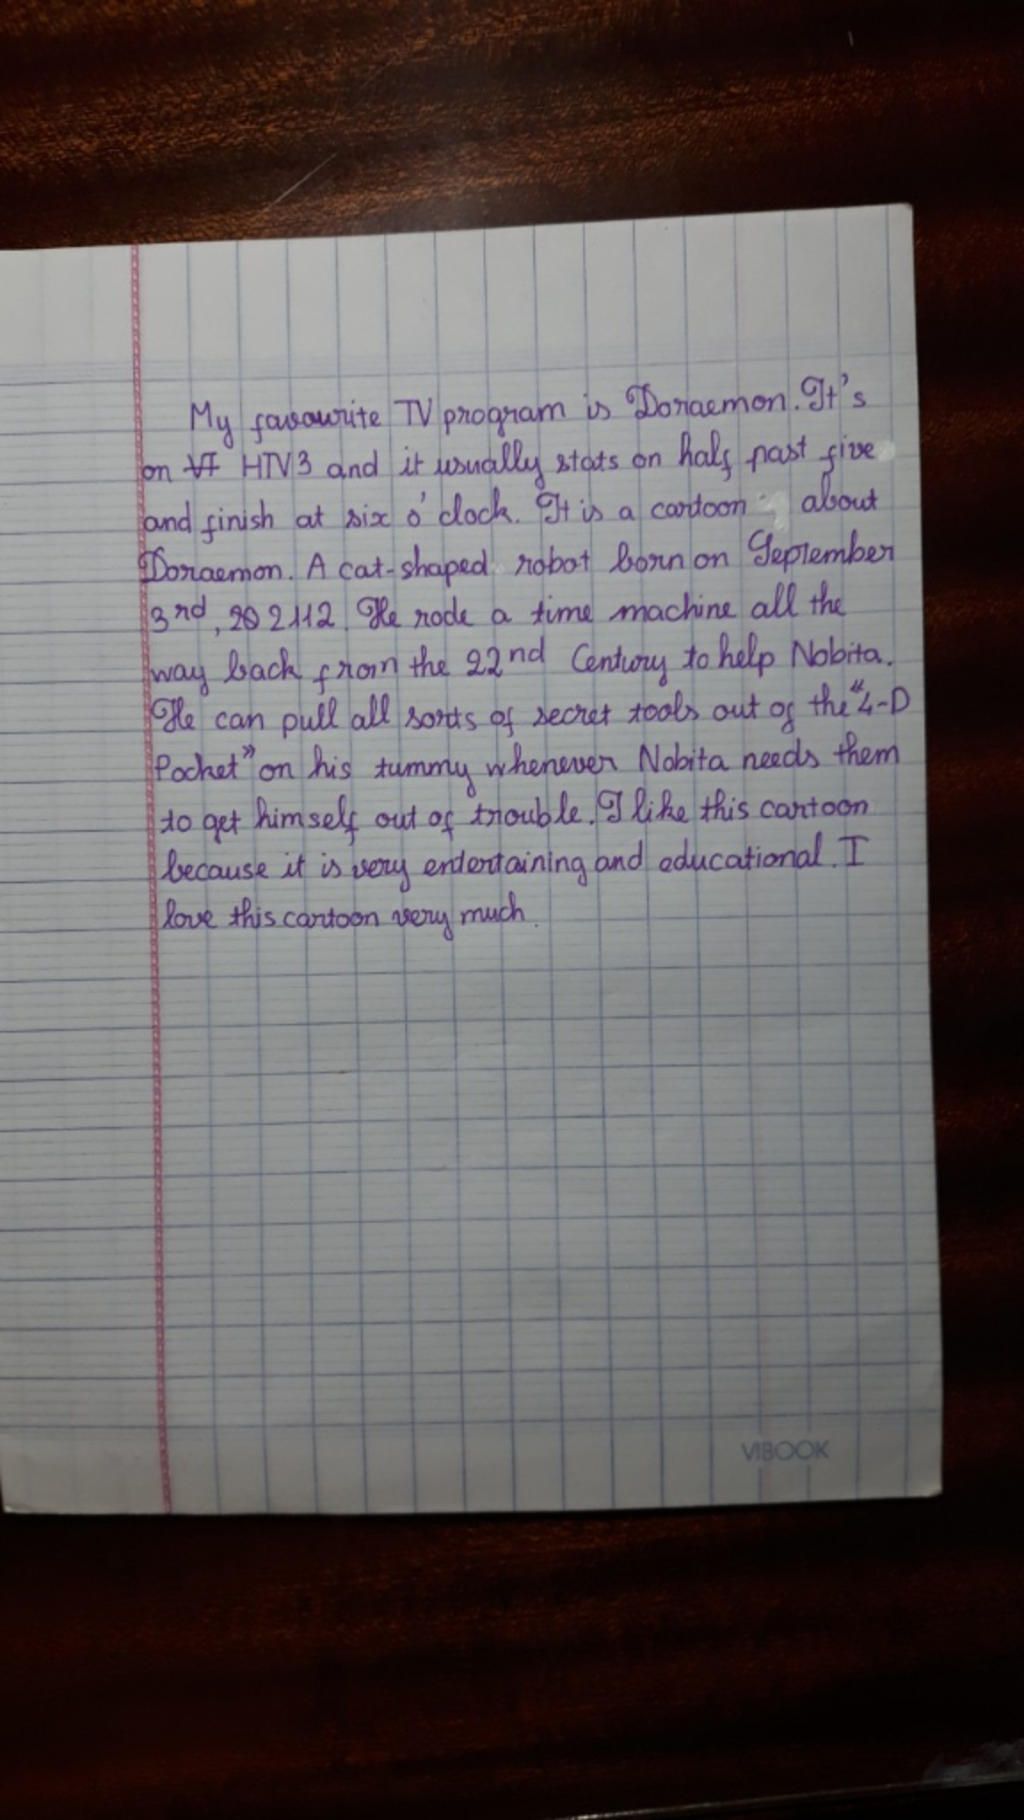 My favourite TV program is Doraemon. It's
on VT HTV3 and it usually stats on half past five
and finish at six o'clock. It is a cartoon about
Doraemon. A cat-shaped robot born on September
3rd, 202112. He rode a time machine all the
way back from the 22nd Century to help Nobita.
He can pull all sorts of secret tools out of the "4-D
Pocket" on his tummy whenever Nobita needs them
to get himself out of trouble. I like this cartoon
because it is very entertaining and educational. I
love this cartoon very much.
VIBOOK